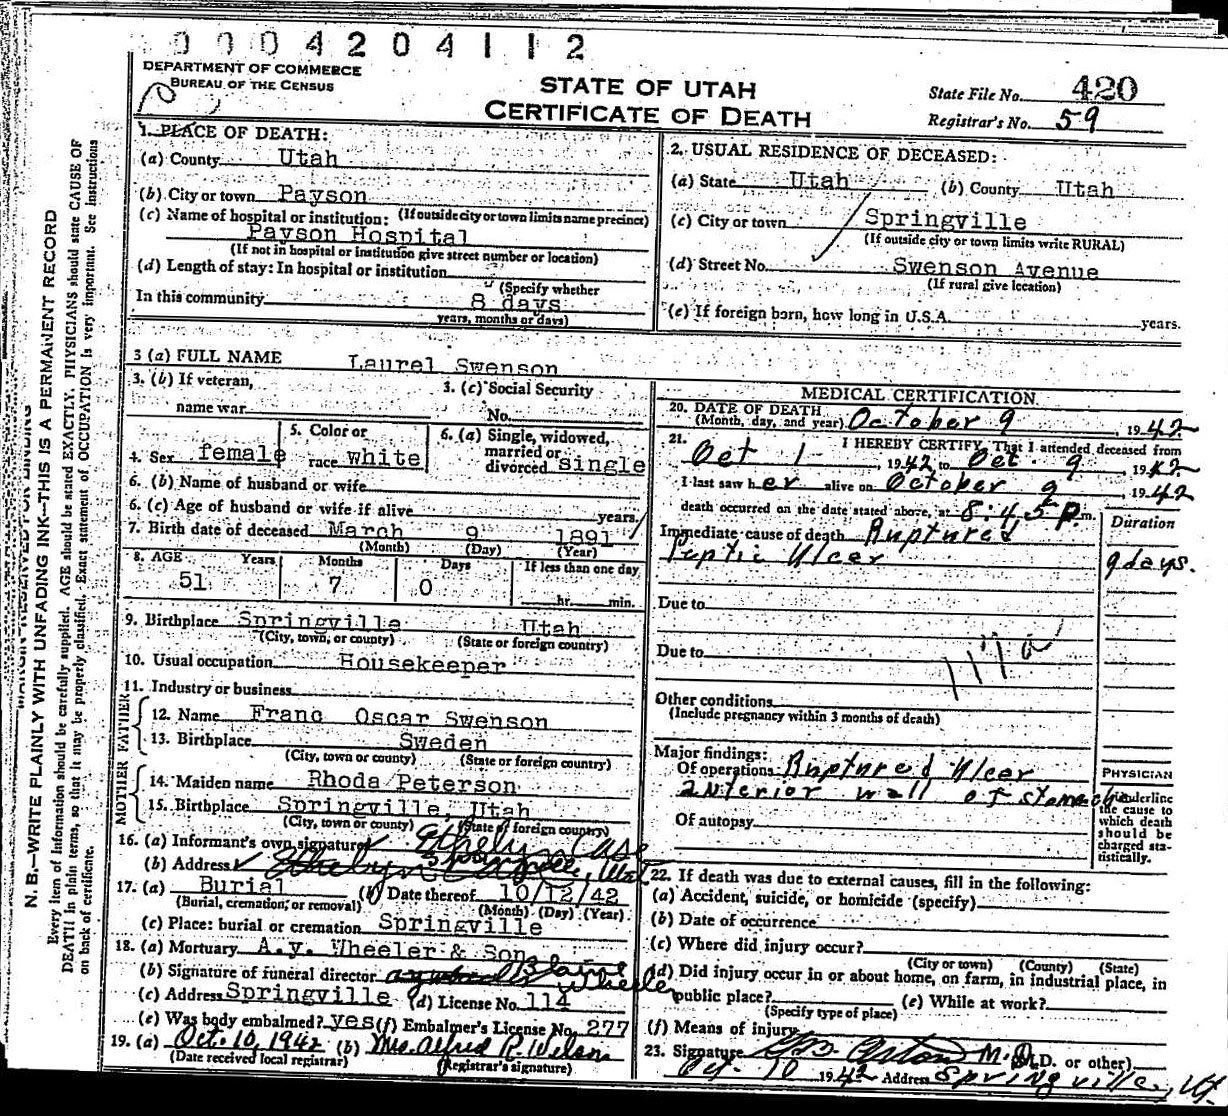 0004204112
DEPARTMENT OF COMMERCE
BUREAU OF THE CENSUS
STATE OF UTAH
CERTIFICATE OF DEATH
State File No. 420
Registrar's No. 59
1. PLACE OF DEATH:
(a) County Utah
(b) City or town Payson
(c) Name of hospital or institution: (If outside city or town limits name precinct)
Payson Hospital
(If not in hospital or institution give street number or location)
(d) Length of stay: In hospital or institution
(Specify whether
In this community 8 days
years, months or days)
2. USUAL RESIDENCE OF DECEASED:
(a) State Utah (b) County Utah
(c) City or town Springville
(If outside city or town limits write RURAL)
(d) Street No. Swenson Avenue
(If rural give location)
(e) If foreign born, how long in U.S.A. years.
3 (a) FULL NAME Laurel Swenson
3. (b) If veteran,
name war
3. (c) Social Security
No.
4. Sex female
5. Color or
race white
6. (a) Single, widowed,
married or
divorced single
6. (b) Name of husband or wife
6. (c) Age of husband or wife if alive years
7. Birth date of deceased March 9 1891
(Month) (Day) (Year)
8. AGE Years Months Days If less than one day
51 7 0
hr. min.
9. Birthplace Springville Utah
(City, town, or county) (State or foreign country)
10. Usual occupation Housekeeper
11. Industry or business
FATHER
12. Name Franc Oscar Swenson
13. Birthplace Sweden
(City, town or county) (State or foreign country)
MOTHER
14. Maiden name Rhoda Peterson
15. Birthplace Springville, Utah
(City, town or county) (State of foreign country)
16. (a) Informant's own signature Ethelyn Case
(b) Address
17. (a) Burial (b) Date thereof 10/12/42
(Burial, cremation, or removal) (Month) (Day) (Year)
(c) Place: burial or cremation Springville
18. (a) Mortuary A.y. Wheeler & Son
(b) Signature of funeral director Blaine Wheeler
(c) Address Springville (d) License No. 114
(e) Was body embalmed? yes (f) Embalmer's License No. 277
19. (a) Oct. 10, 1942 (b) Mrs. Alfred R. Wilson
(Date received local registrar) (Registrar's signature)
MEDICAL CERTIFICATION
20. DATE OF DEATH
(Month, day, and year) October 9, 1942
21. I HEREBY CERTIFY, That I attended deceased from
Oct 1, 1942, to Oct. 9, 1942
I last saw her alive on October 9, 1942
death occurred on the date stated above, at 8:45 P.m.
Duration
Immediate cause of death Ruptured
Peptic Ulcer 9 days.
Due to
Due to
117a
Other conditions
(Include pregnancy within 3 months of death)
Major findings:
Of operations Ruptured Ulcer
anterior wall of stomach
Of autopsy
PHYSICIAN
Underline
the cause to
which death
should be
charged sta-
tistically.
22. If death was due to external causes, fill in the following:
(a) Accident, suicide, or homicide (specify)
(b) Date of occurrence
(c) Where did injury occur?
(City or town) (County) (State)
(d) Did injury occur in or about home, on farm, in industrial place, in
public place? (e) While at work?
(Specify type of place)
(f) Means of injury
23. Signature Orton M.D. (M.D. or other)
Oct. 10 1942 Address Springville, Ut.
N. B.—WRITE PLAINLY WITH UNFADING INK—THIS IS A PERMANENT RECORD
Every item of information should be carefully supplied. AGE should be stated EXACTLY. PHYSICIANS should state CAUSE OF
DEATH in plain terms, so that it may be properly classified. Exact statement of OCCUPATION is very important. See instructions
on back of certificate.